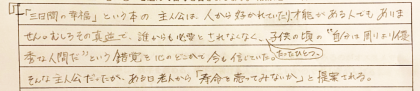 「三日間の幸福」という本の主人公は、人から好かれていたり才能がある人でもありま
せん。むしろその真逆で、誰からも必要とされなくなく、子供の頃の"自分は周りより優
秀な人間だ"という錯覚を心のどこかで今も信じていた。たったひとつ。
そんな主人公だったが、ある日老人から「寿命を売ってみないか」と提案される。